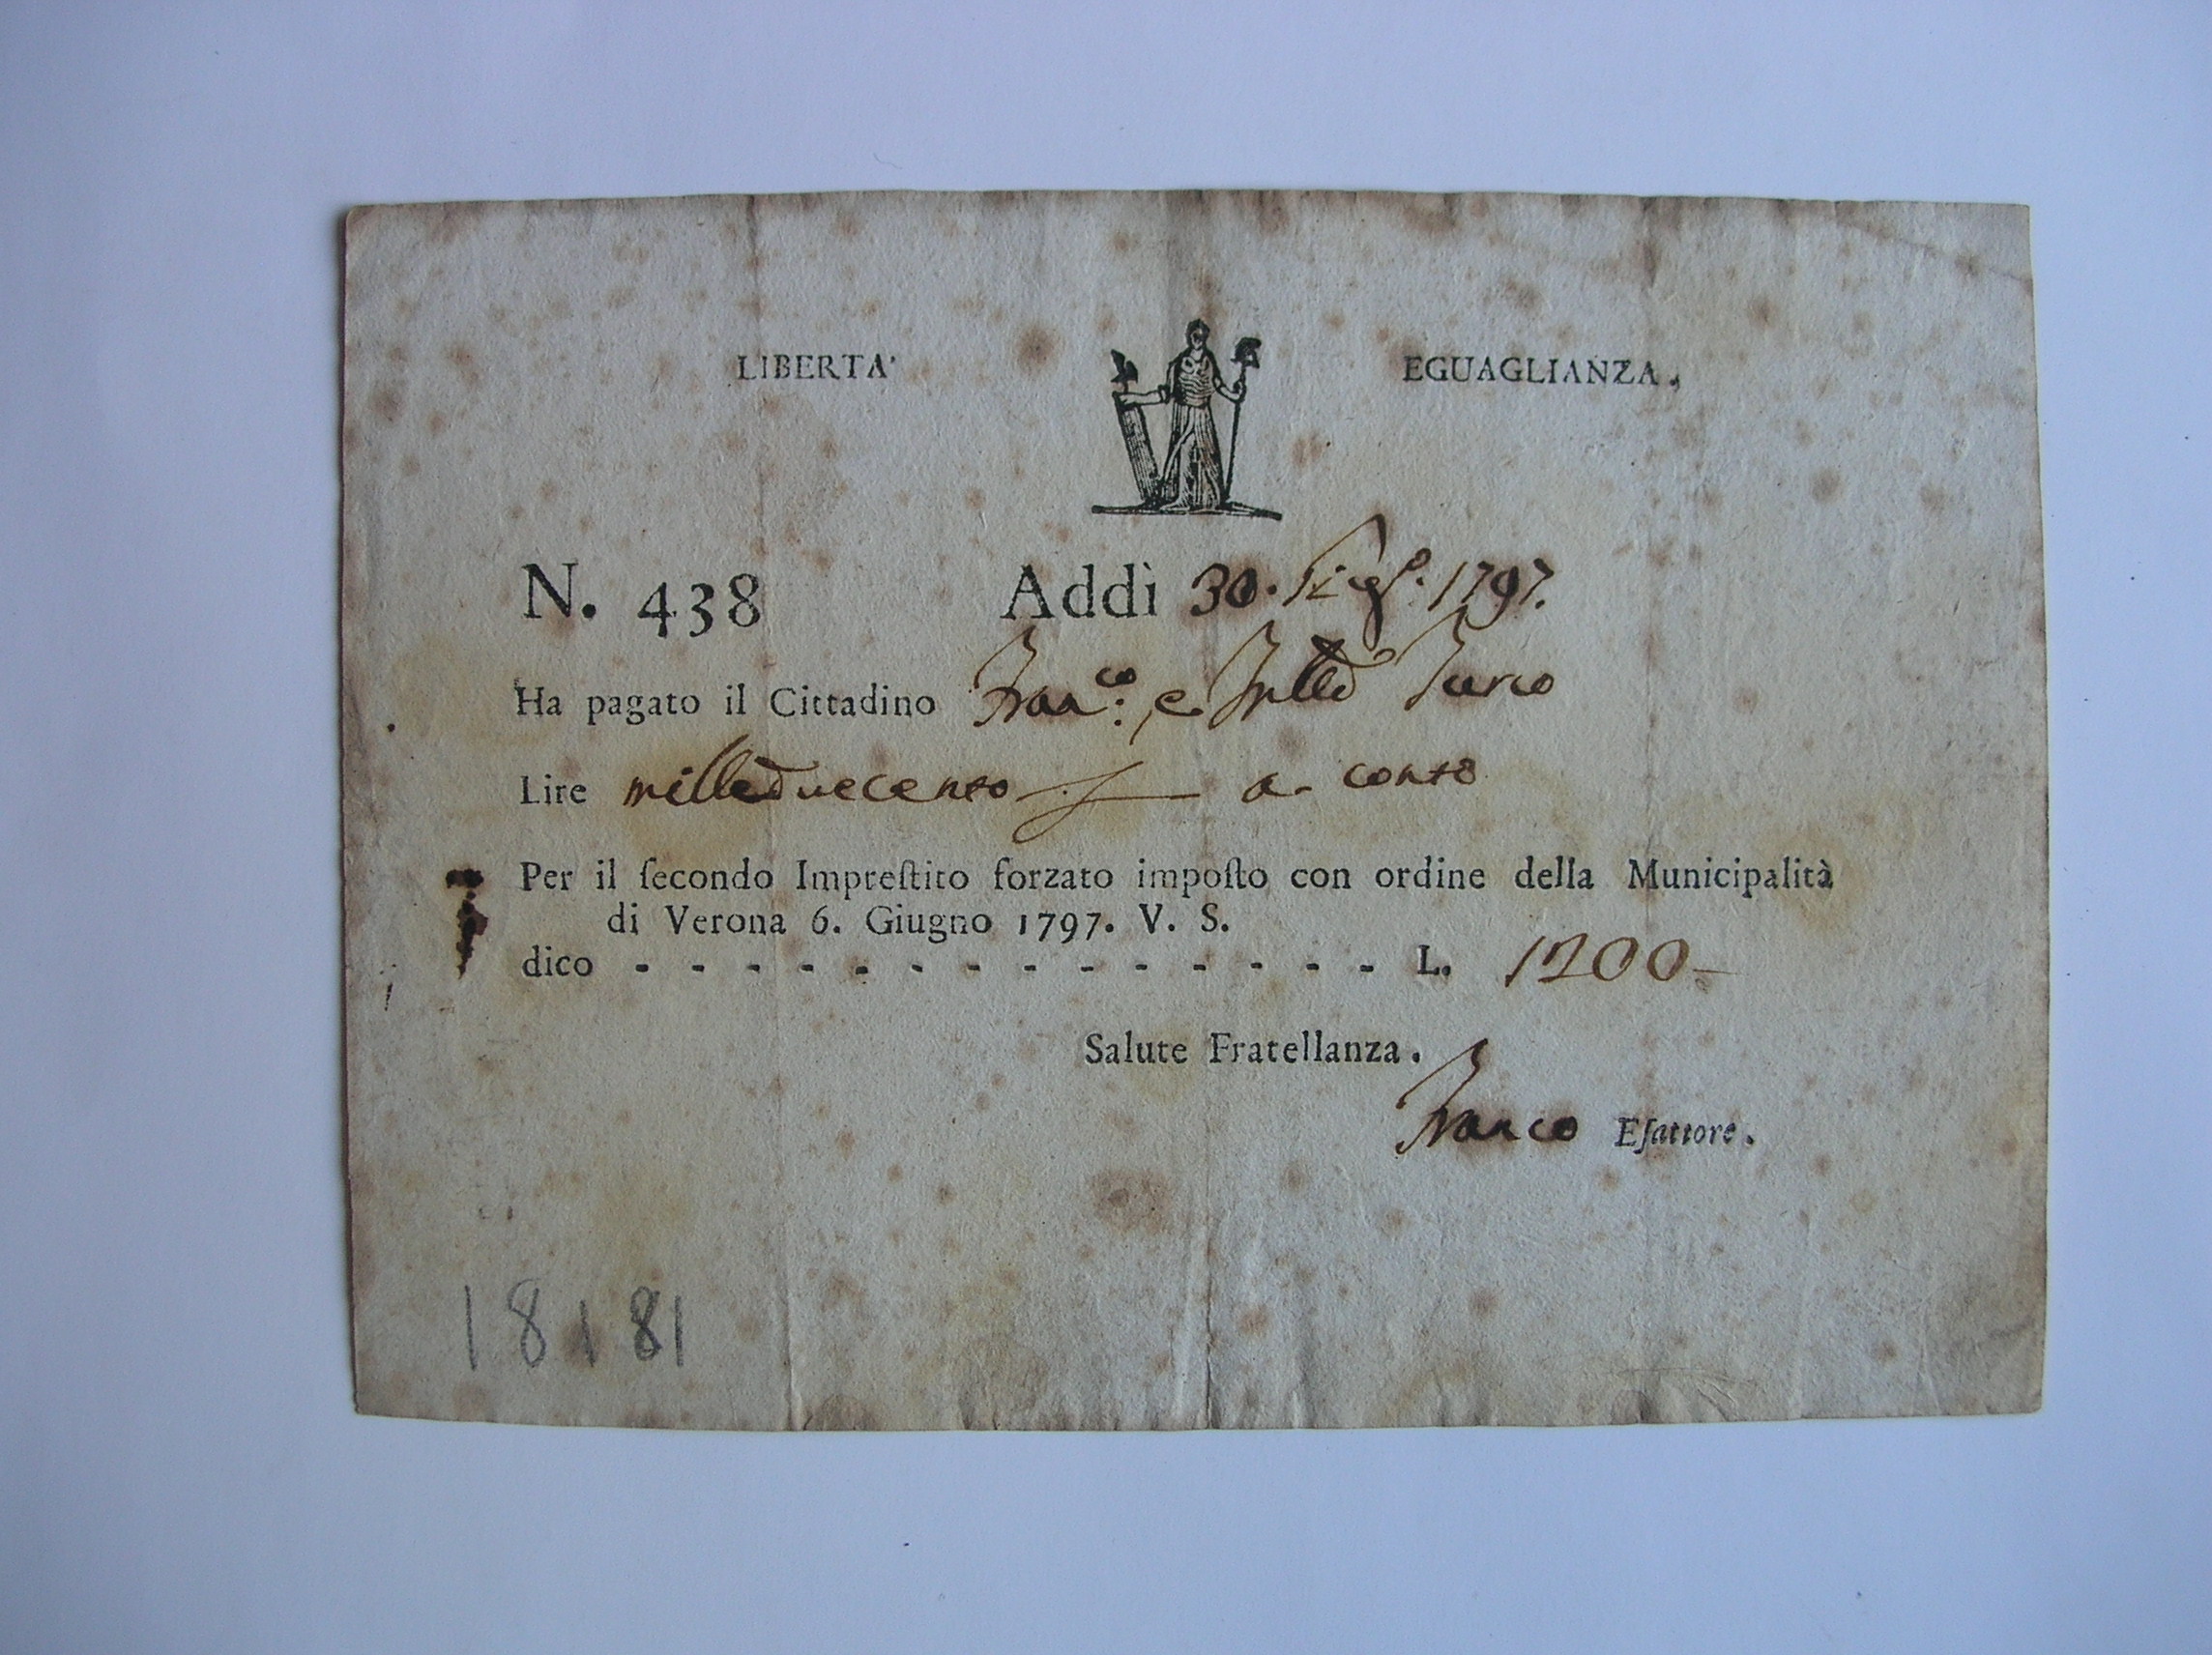 LIBERTA' EGUAGLIANZA.
N. 438 Addì 30. 1797.
Ha pagato il Cittadino Fran.co e Turco
Lire milleduecento a conto
Per il ſecondo Impreſtito forzato impoſto con ordine della Municipalità
di Verona 6. Giugno 1797. V. S.
dico - - - - - - - - - - - - - - L. 1200-
Salute Fratellanza.
Franco Eſattore.
18181